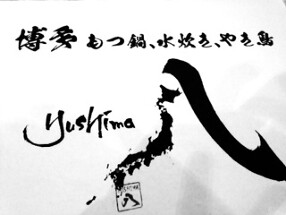 博多 もつ鍋、水炊き、やき鳥
yushima
八
八